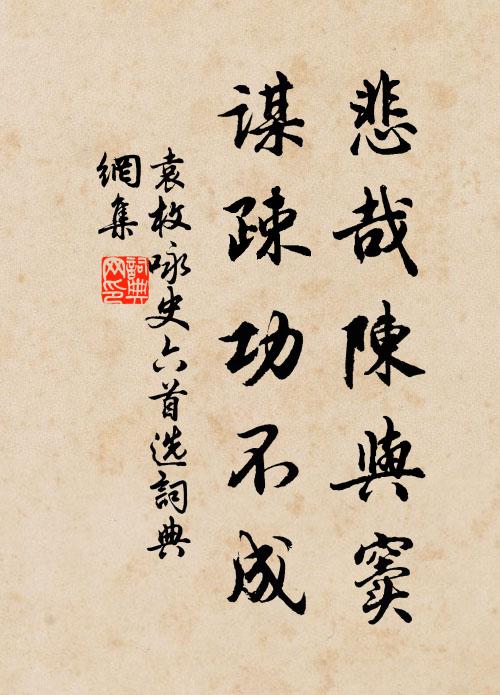 悲哉陳與竇
謀疎功不成
袁枚咏史六首选詞典
網集
詞典網印